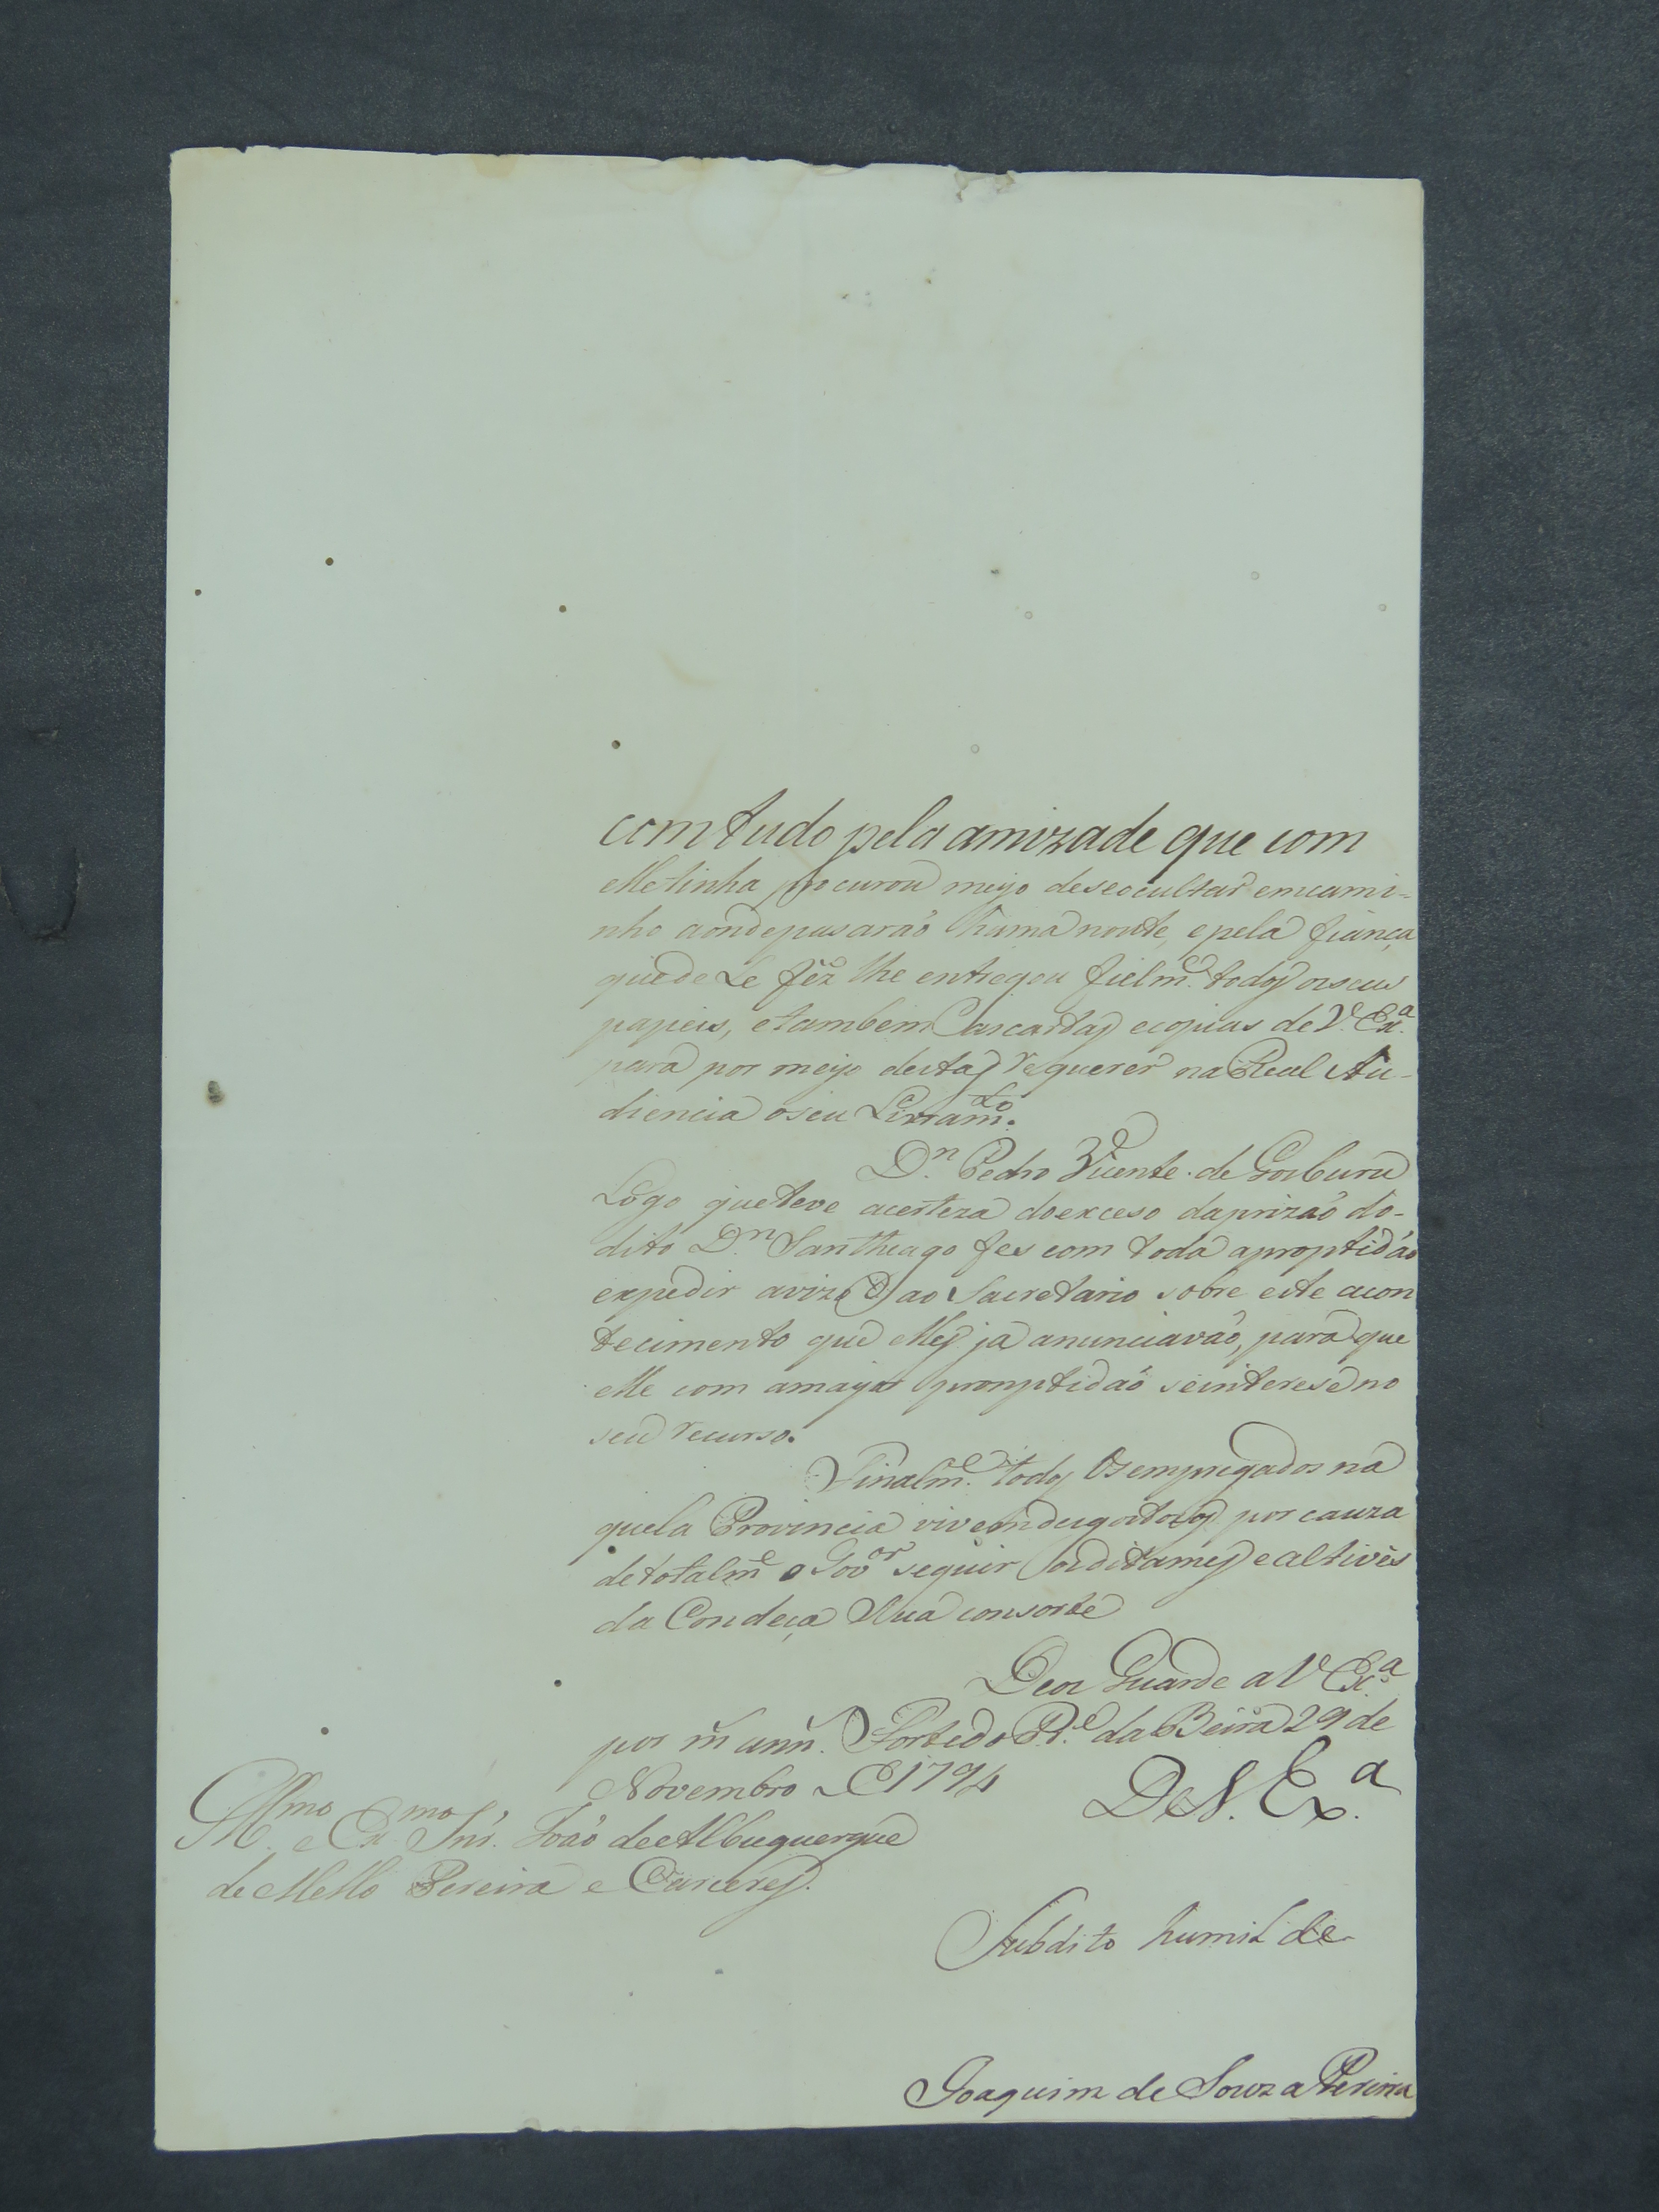 com tudo pela amizade que com
elle tinha procurou meyo de se ocultar em cami-
nho aonde pasarão huma noute, e pela fiança
que de Le fêz lhe entregou fielm.e todos os seus
papeis, e tambem as cartas e copias de V. Ex.a
para por meyo destas requerer na Real Au-
diencia o seu Livram.to
D.n Pedro Vicente de Gorburu
Logo que teve a certeza do exceso da prizaõ do-
dito D.n Santhiago fes com toda a proptidaõ
expedir avizo ao Sacretario sobre este acon
tecimento que elles ja anunciavaõ, para que
elle com a mayor promptidaõ se interese no
seu recurso.
Finalm.e todos Os empregados na
quela Provincia vivem degostozos por cauza
de totalm.e o Gov.or seguir os ditames e altivês
da Condeça Sua consorte
Deos Guarde a V Ex.a
por m ann. Forte do P.e da Beira 29 de
Novembro de 1794
De V. Ex.a
Ill.mo e Ex.mo Snr. João de Albuquerque
de Mello Pereira e Caceres.
Subdito humilde
Joaquim de Souza Pereira